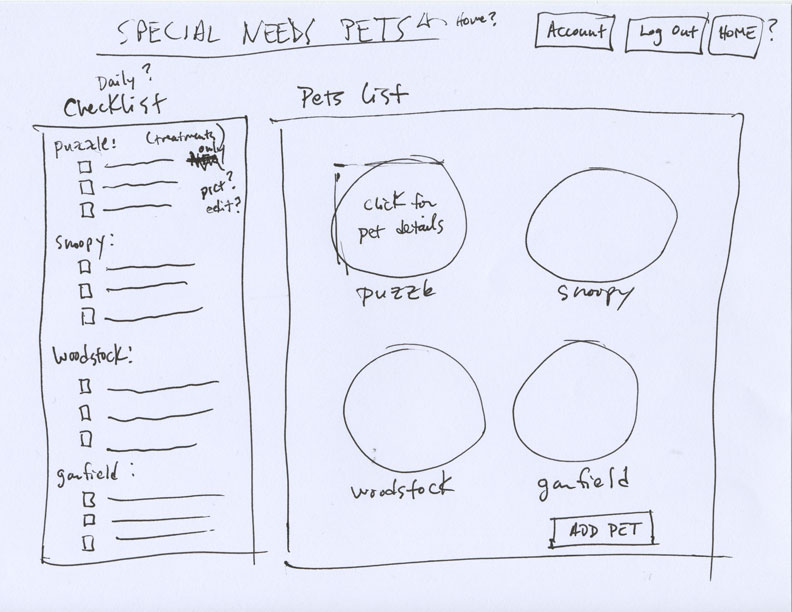 SPECIAL NEEDS PETS
Home?
Account
Log Out
HOME ?
Daily?
Checklist
puzzle:
(treatments
only)
pict?
edit?
snoopy:
woodstock:
garfield:
Pets list
click for
pet details
puzzle
snoopy
woodstock
garfield
ADD PET